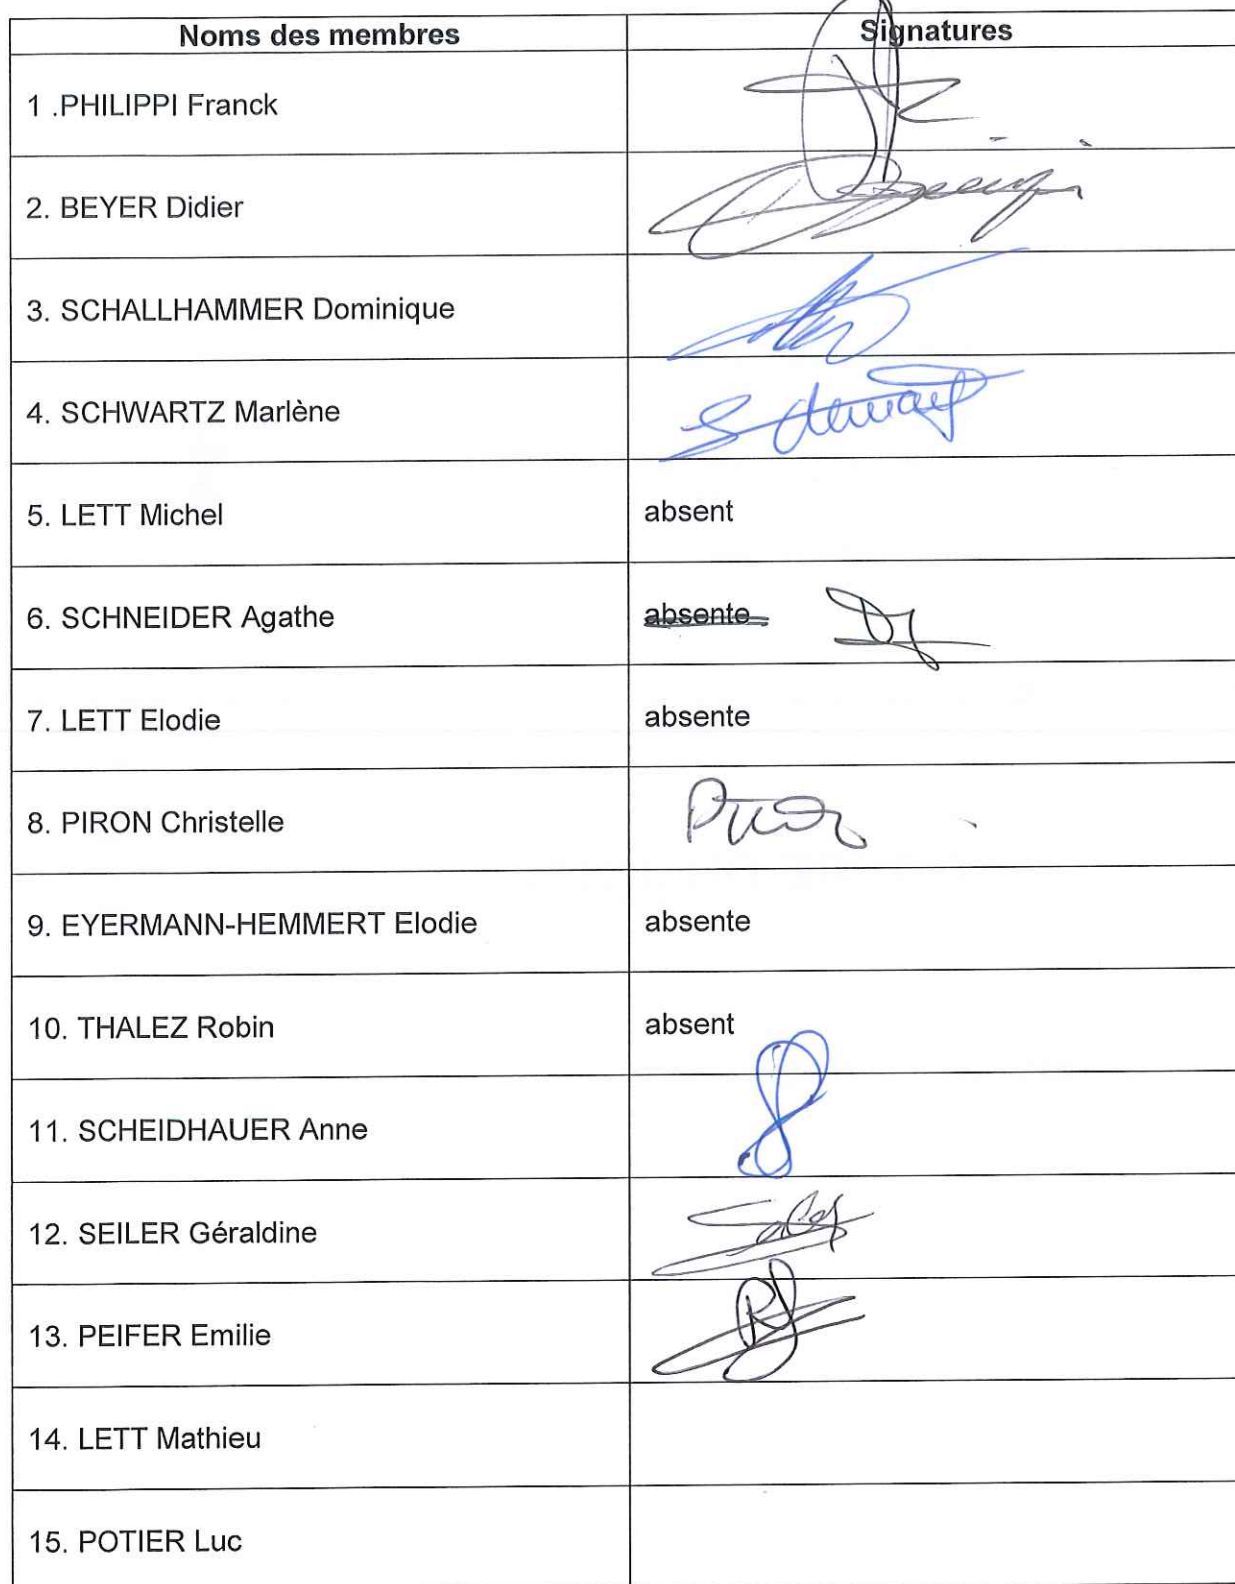 Noms des membres Signatures
1 .PHILIPPI Franck
2. BEYER Didier
3. SCHALLHAMMER Dominique
4. SCHWARTZ Marlène
5. LETT Michel absent
6. SCHNEIDER Agathe absente
7. LETT Elodie absente
8. PIRON Christelle
9. EYERMANN-HEMMERT Elodie absente
10. THALEZ Robin absent
11. SCHEIDHAUER Anne
12. SEILER Géraldine
13. PEIFER Emilie
14. LETT Mathieu
15. POTIER Luc